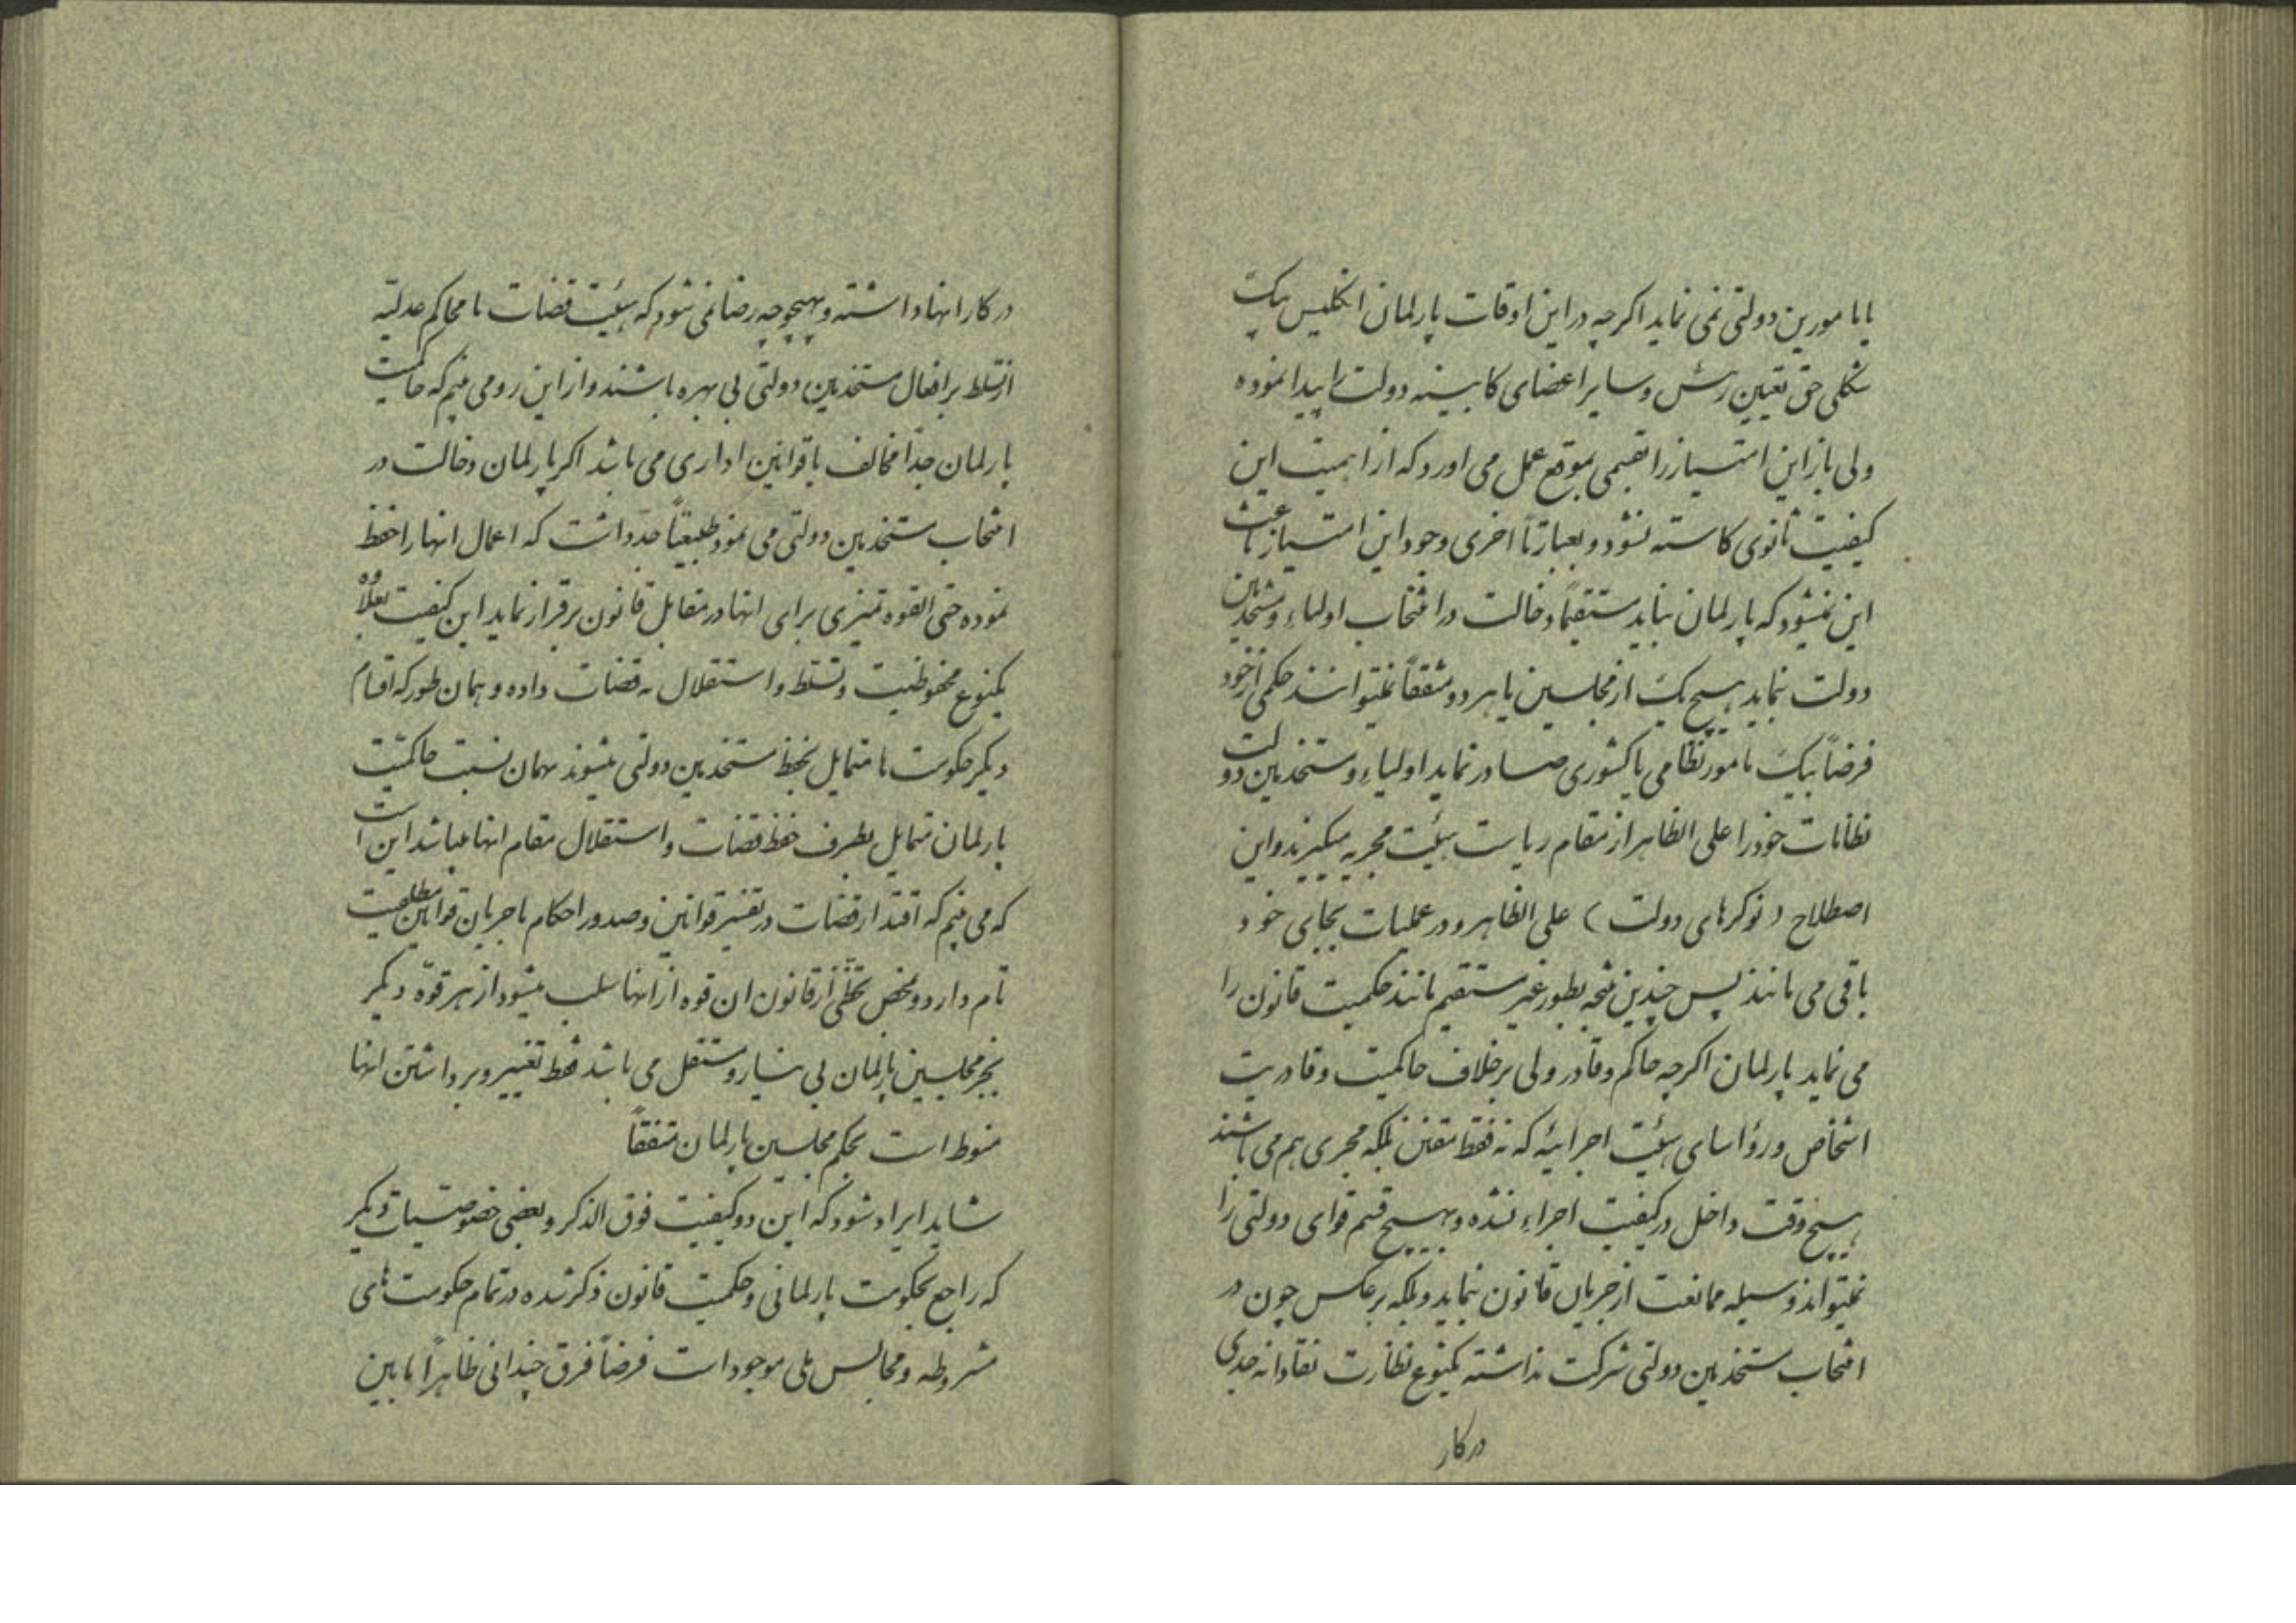 یا مامورین دولتی نمی نماید اکرچه در این اوقات پارلمان انکلیس بیک
شکلی حق تعیین رئیس و سایر اعضای کابینه دولت را پیدا نموده
ولی باز این امتیاز را بقسمی بموقع عمل می اورد که از اهمیت این
کیفیت ثانوی کاسته نشود و بعبارتاً اخری وجود این امتیاز باعث
این نمیشود که پارلمان بتواند مستقیماً دخالت در انتخاب اولیاء و مستخدمین
دولت نماید هیچ یک از مجلسین یا هر دو متفقاً نمیتوانند حکمی از خود
فرضاً بیک مامور نظامی یا کشوری صادر نماید اولیاء و مستخدمین دولت
نظامات خود را علی الظاهر از مقام ریاست هیئت مجریه میکیرند و این
اصطلاح (نوکرهای دولت) علی الظاهر و در عملیات بجای خود
باقی می مانند پس چنین نتیجه بطور غیر مستقیم مانند حکمیت قانون را
می نماید پارلمان اکرچه حاکم و قادر ولی برخلاف حاکمیت و قادریت
اشخاص و رؤاسای هیئت اجرائیه که نه فقط مقنن بلکه مجری هم می باشند
هیچ وقت داخل در کیفیت اجراء نشده و بهیچ قسم قوای دولتی را
نمیتواند وسیله ممانعت از جریان قانون نماید و بلکه برعکس چون در
انتخاب مستخدمین دولتی شرکت نداشته یکنوع نظارت نقادانه جدی
در کار
در کار انها داشته و بهیچوجه رضا نمی شود که هیئت قضات یا محاکم عدلیه
از تسلط بر افعال مستخدمین دولتی بی بهره باشند و از این رو می بینیم که حاکمیت
پارلمان جداً مخالف با قوانین اداری می باشد اکر پارلمان دخالت در
انتخاب مستخدمین دولتی می نمود طبیعتاً جد داشت که اعمال انها را حفظ
نموده حتی القوه تمیزی برای انها در مقابل قانون برقرار نماید این کیفیت بعلاوه
یکنوع محفوظیت و تسلط و استقلال به قضات داده و همان طور که اقسام
دیکر حکومت ها متمایل بحفظ مستخدمین دولتی میشوند بهمان نسبت حاکمیت
پارلمان متمایل بطرف حفظ قضات و استقلال مقام انها میباشد این است
که می بینیم که اقتدار قضات در تفسیر قوانین و صدور احکام یا جریان قوانین مطلعیت
تام دارد و بمحض تخطی از قانون ان قوه از انها سلب میشود از هر قوّه دیکر
بجز مجلسین پارلمان بی نیاز و مستقل می باشد فقط تغییر و برداشتن انها
منوط است بحکم مجلسین پارلمان متفقاً
شاید ایراد شود که این دو کیفیت فوق الذکر و بعضی خصوصیات دیکر
که راجع بحکومت پارلمانی و حکمیت قانون ذکر شده در تمام حکومت های
مشروطه و مجالس ملی موجود است فرضاً فرق چندانی ظاهراً مابین